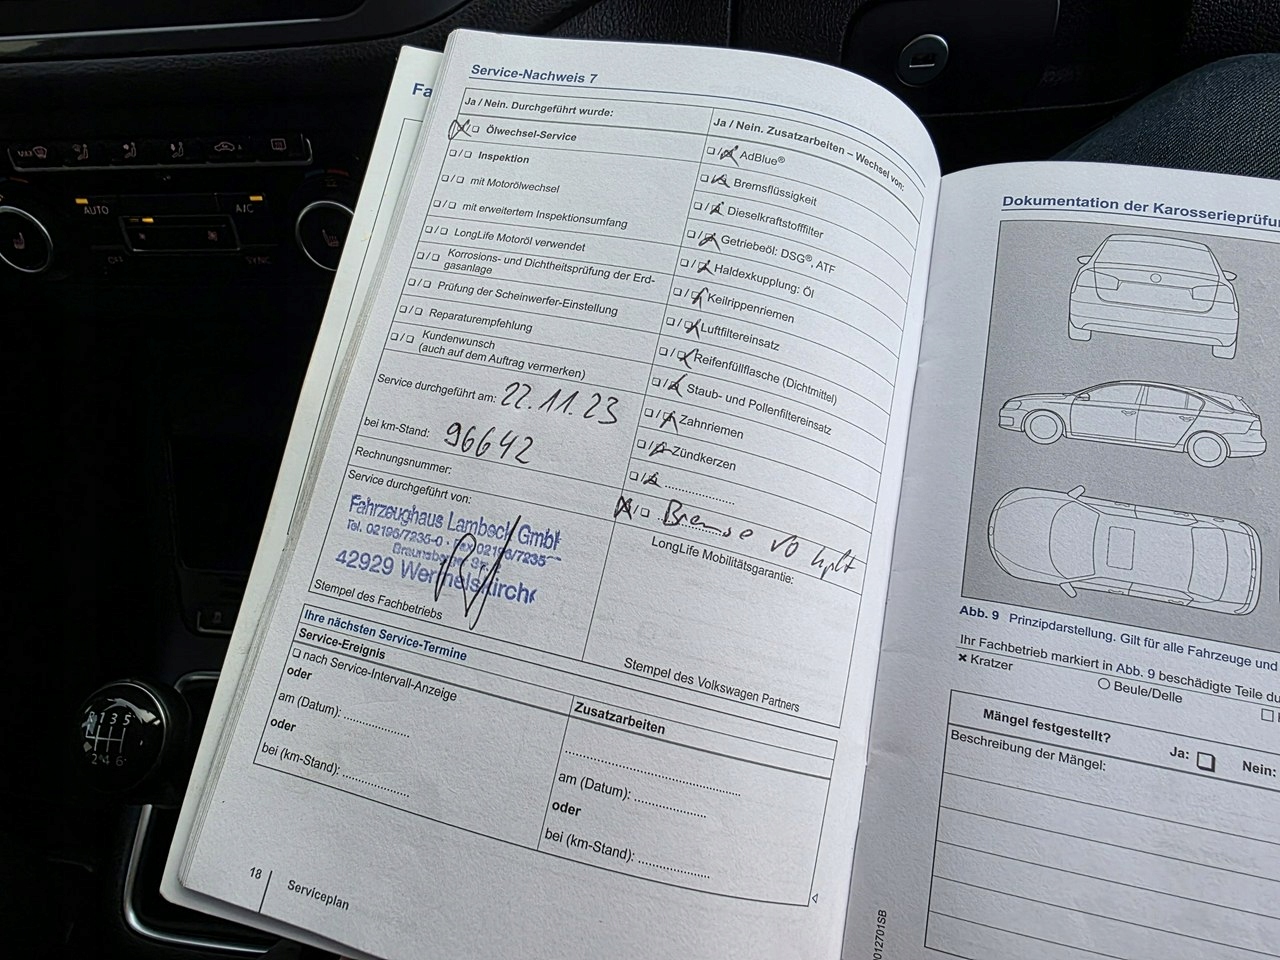 Service-Nachweis 7
Ja / Nein. Durchgeführt wurde:
Ölwechsel-Service
Inspektion
mit Motorölwechsel
mit erweitertem Inspektionsumfang
LongLife Motoröl verwendet
Korrosions- und Dichtheitsprüfung der Erd-
gasanlage
Prüfung der Scheinwerfer-Einstellung
Reparaturempfehlung
Kundenwunsch
(auch auf dem Auftrag vermerken)
Service durchgeführt am: 22.11.23
bei km-Stand: 96642
Rechnungsnummer:
Service durchgeführt von:
Fahrzeughaus Lambeck GmbH
Tel. 02196/7235-0 · Fax 02196/7235
42929 Wermelskirch
Stempel des Fachbetriebs
Ja / Nein. Zusatzarbeiten – Wechsel von:
AdBlue®
Bremsflüssigkeit
Dieselkraftstofffilter
Getriebeöl: DSG®, ATF
Haldexkupplung: Öl
Keilrippenriemen
Luftfiltereinsatz
Reifenfüllflasche (Dichtmittel)
Staub- und Pollenfiltereinsatz
Zahnriemen
Zündkerzen
Bremse VO kplt
LongLife Mobilitätsgarantie:
Stempel des Volkswagen Partners
Ihre nächsten Service-Termine
Service-Ereignis
nach Service-Intervall-Anzeige
oder
am (Datum):
oder
bei (km-Stand):
Zusatzarbeiten
am (Datum):
oder
bei (km-Stand):
18
Serviceplan
Fa
Dokumentation der Karosserieprüfu
Abb. 9 Prinzipdarstellung. Gilt für alle Fahrzeuge und
Ihr Fachbetrieb markiert in Abb. 9 beschädigte Teile du
× Kratzer
Beule/Delle
Mängel festgestellt?
Ja:
Nein:
Beschreibung der Mängel:
012701SB
AUTO
A/C
SYNC
1 3 5
2 4 6